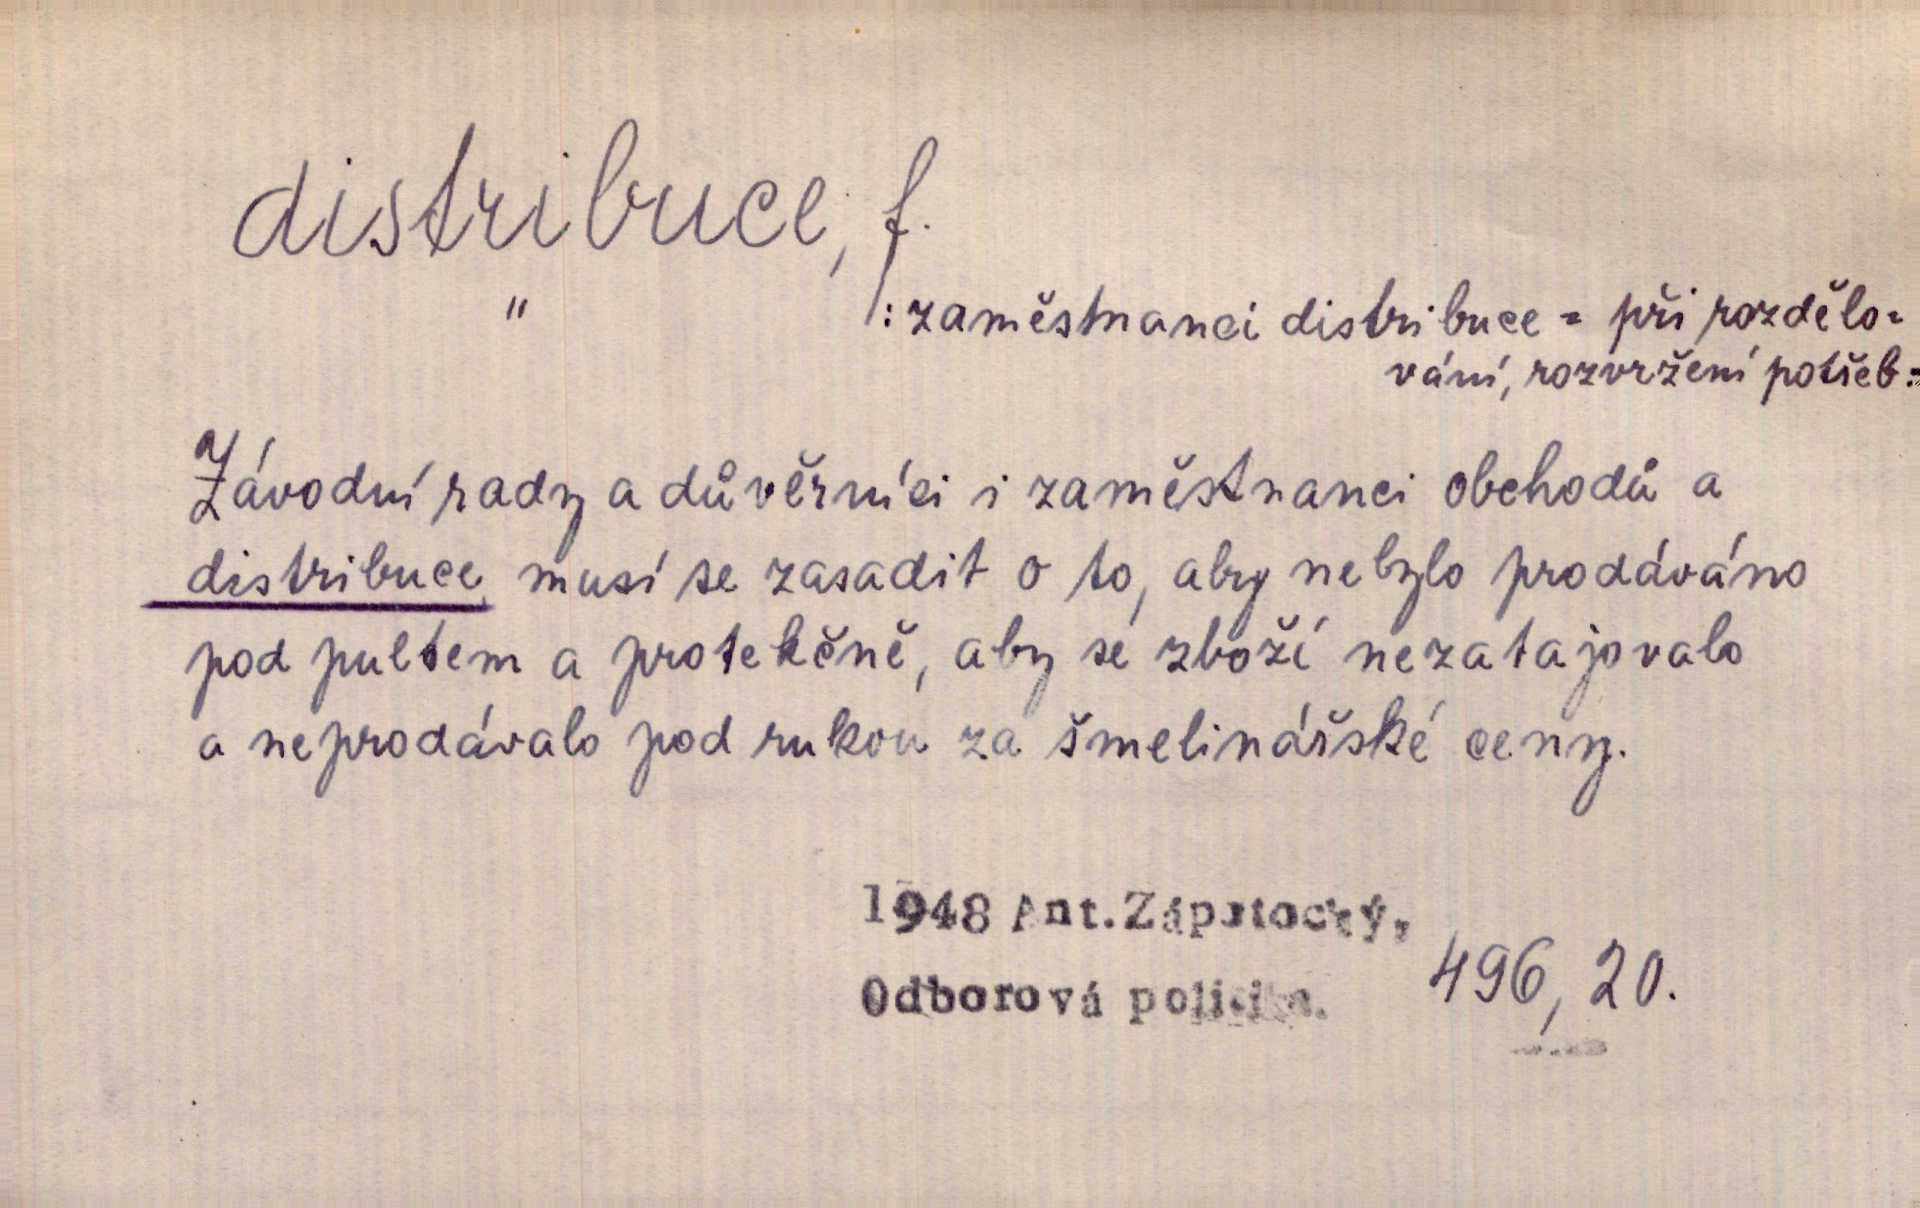 distribuce, f.
" : zaměstnanci distribuce = při rozdělo-
vání, rozvržení potřeb:
Závodní rady a důvěrníci i zaměstnanci obchodů a
distribuce musí se zasadit o to, aby nebylo prodáváno
pod pultem a protekčně, aby se zboží nezatajovalo
a neprodávalo pod rukou za šmelinářské ceny.
1948 Ant. Zápotocký,
Odborová politika. 496, 20.